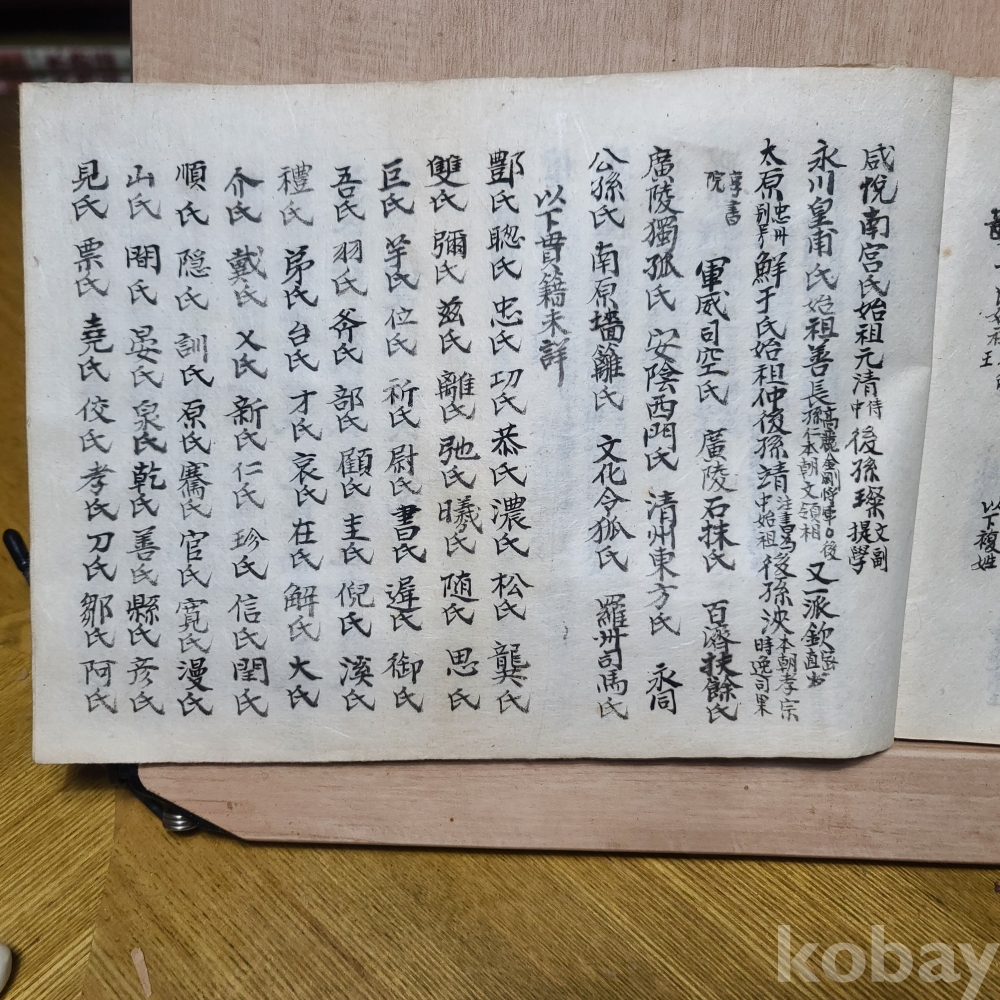 以下複姓
咸悅南宮氏始祖元清侍中後孫璨文副提學
永川皇甫氏始祖善長高麗金剛將軍後孫仁本朝文領相又一派欽
太原忠州別号鮮于氏始祖仲後孫靖中始祖後孫浹本朝孝宗時逸司果
軍威司空氏 廣陵石抹氏 百濟扶餘氏
廣陵獨孤氏 安陰西門氏 清州東方氏 永同
公孫氏 南原墻籬氏 文化令狐氏 羅州司馬氏
以下貫籍未詳
酆氏 聦氏 忠氏 功氏 恭氏 濃氏 松氏 龔氏
雙氏 彌氏 兹氏 離氏 弛氏 曦氏 随氏 思氏
巨氏 芋氏 位氏 祈氏 尉氏 書氏 遲氏 御氏
吾氏 羽氏 斧氏 部氏 顧氏 圭氏 倪氏 溪氏
禮氏 弟氏 台氏 才氏 哀氏 在氏 解氏 大氏
介氏 戴氏 乂氏 新氏 仁氏 珍氏 信氏 閏氏
順氏 隠氏 訓氏 原氏 騫氏 官氏 寛氏 漫氏
山氏 閻氏 晏氏 泉氏 乾氏 善氏 縣氏 彦氏
見氏 票氏 堯氏 佼氏 孝氏 刀氏 鄒氏 阿氏
kobay